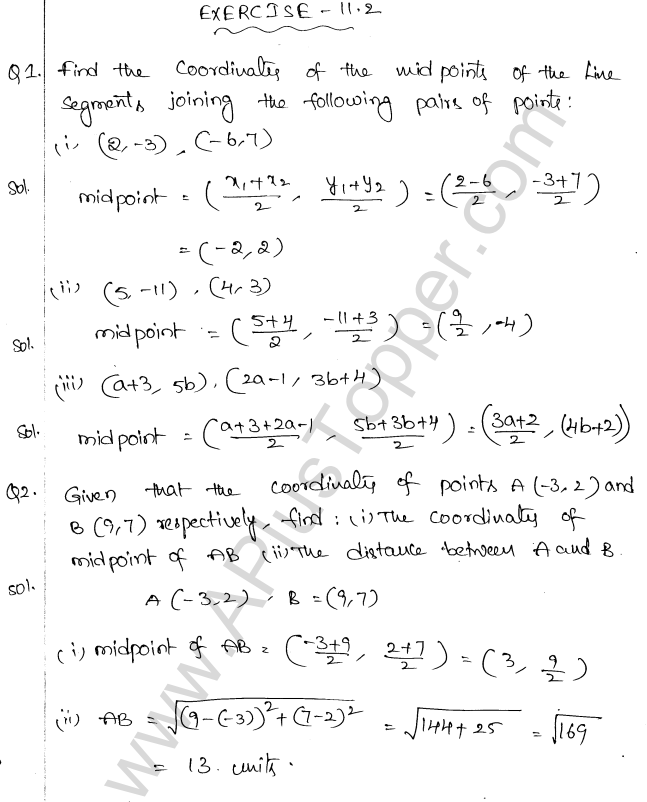 EXERCISE - 11.2
Q1. Find the Coordinates of the midpoints of the Line
segments joining the following pairs of points:
(i) (2,-3), (-6,7)
Sol. midpoint = (x₁+x₂/2, y₁+y₂/2) = (2-6/2, -3+7/2)
= (-2, 2)
(ii) (5,-11), (4,3)
Sol. midpoint = (5+4/2, -11+3/2) = (9/2, -4)
(iii) (a+3, 5b), (2a-1, 3b+4)
Sol. midpoint = (a+3+2a-1/2, 5b+3b+4/2) = (3a+2/2, (4b+2))
Q2. Given that the coordinates of points A (-3,2) and
B (9,7) respectively, find: (i) The coordinates of
midpoint of AB (ii) The distance between A and B.
sol. A (-3,2), B = (9,7)
(i) midpoint of AB = (-3+9/2, 2+7/2) = (3, 9/2)
(ii) AB = √(9-(-3))²+(7-2)² = √144+25 = √169
= 13 units.
www.APlusTopper.com